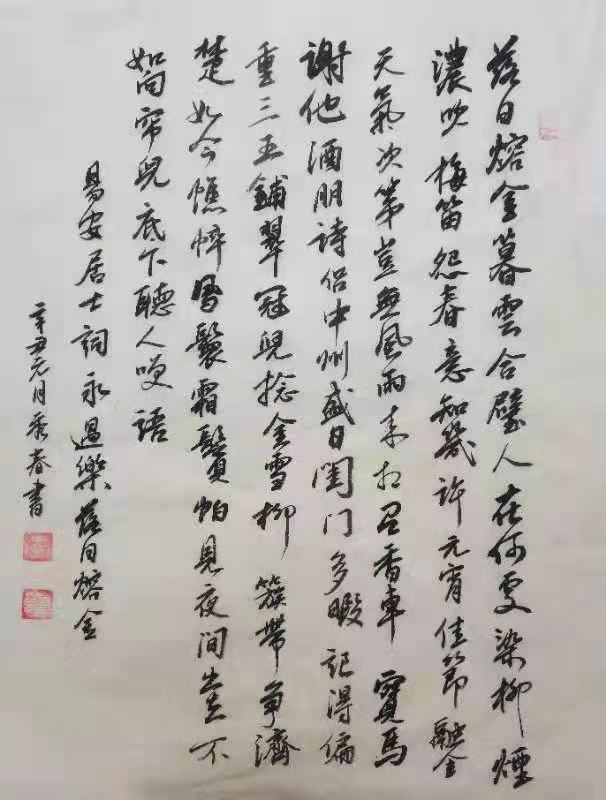 落日熔金暮雲合璧人在何處染柳煙
濃吹梅笛怨春意知幾許元宵佳節融
天氣次第豈無風雨來相召香車寶馬
謝他酒朋詩侶中州盛日閨門多暇記得偏
重三五鋪翠冠兒捻金雪柳簇帶爭濟
楚如今憔悴風鬟霜鬢怕見夜間出去不
如向帘兒底下聽人笑語
易安居士詞永遇樂落日熔金
辛丑元月秀春書